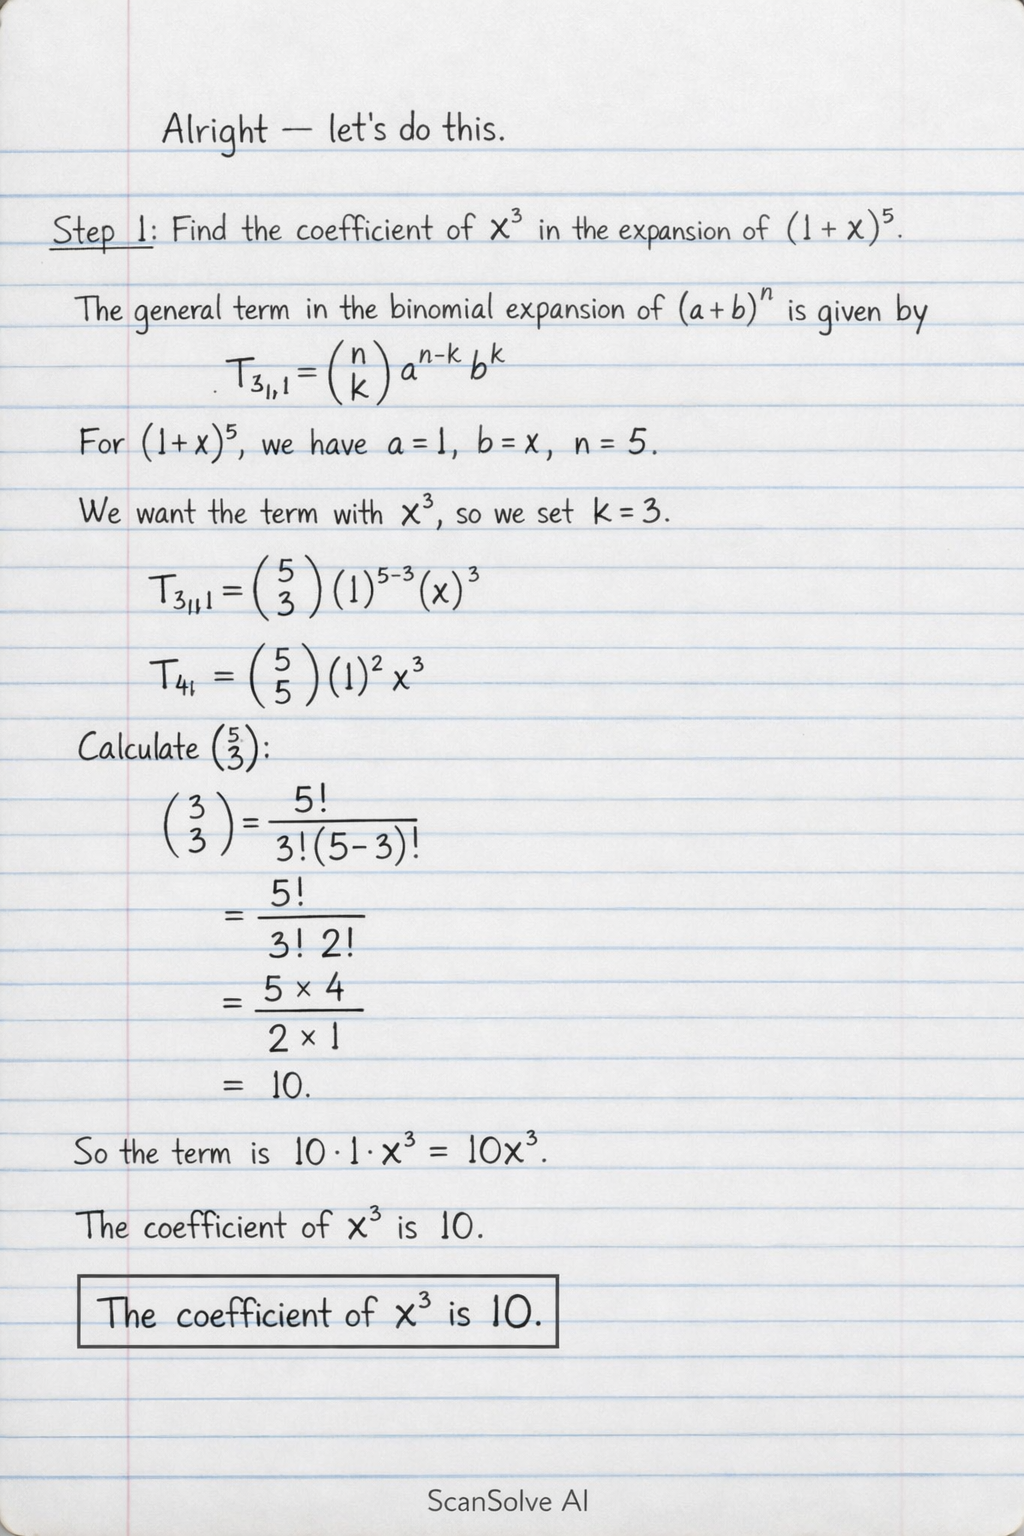 Alright — let's do this.
Step 1: Find the coefficient of x³ in the expansion of (1 + x)⁵.
The general term in the binomial expansion of (a + b)ⁿ is given by
T = (n k) aⁿ⁻ᵏ bᵏ
For (1+x)⁵, we have a = 1, b = x, n = 5.
We want the term with x³, so we set k = 3.
= (5 3) (1)⁵⁻³ (x)³
= (5 5) (1)² x³
Calculate (5 3):
(3 3) = 5! / 3!(5-3)!
= 5! / 3! 2!
= 5 × 4 / 2 × 1
= 10.
So the term is 10 · 1 · x³ = 10x³.
The coefficient of x³ is 10.
The coefficient of x³ is 10.
ScanSolve AI